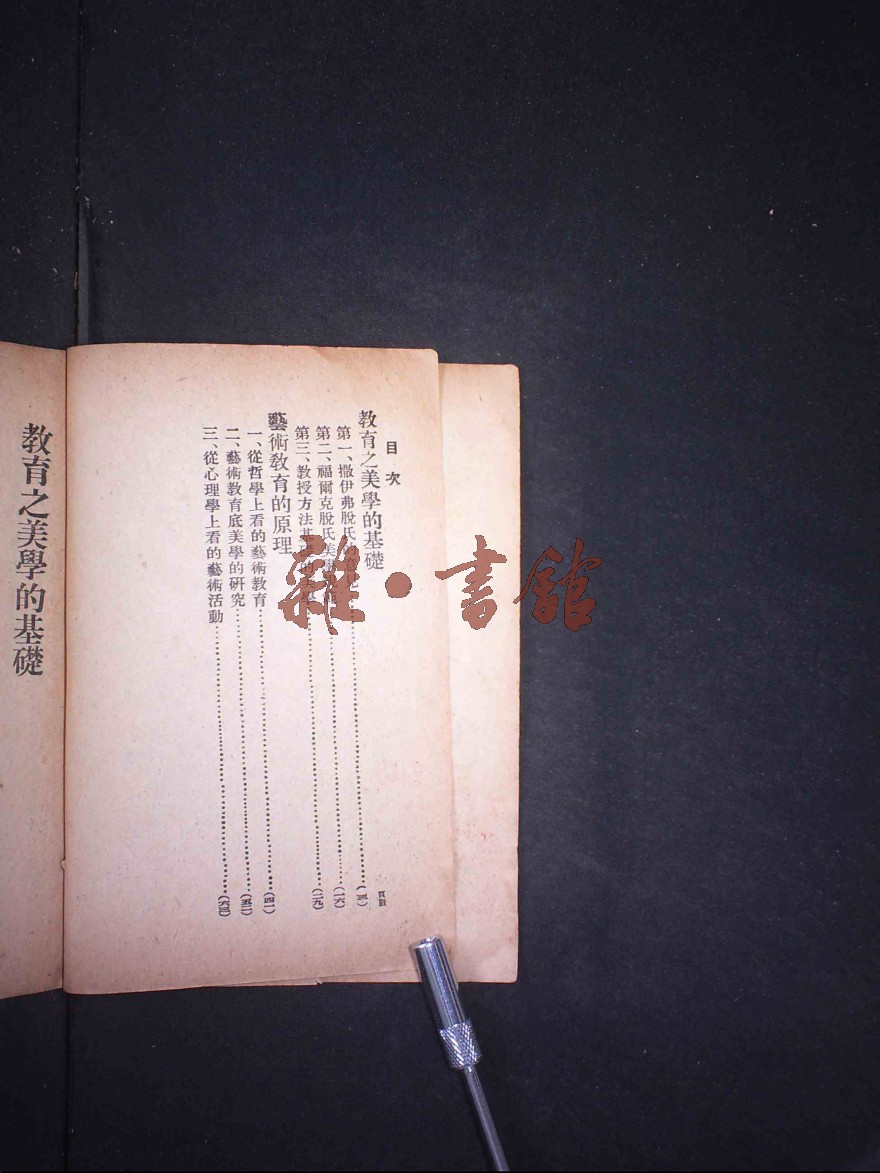 目次
頁數
教育之美學的基礎
第一、撒伊弗脫氏……(三)
第二、福爾克脫氏美……(一六)
第三、教授方法……(二九)
藝術教育的原理
一、從哲學上看的藝術教育……(四一)
二、藝術教育底美學的研究……(五二)
三、從心理學上看的藝術活動……(六三)
教育之美學的基礎
雜·書館